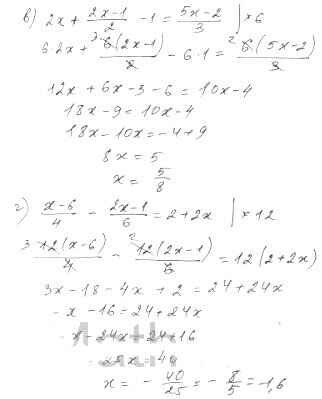 в) 2x + (2x-1)/2 - 1 = (5x-2)/3 | ×6
6·2x + ³6(2x-1)/2 - 6·1 = ²6(5x-2)/3
12x + 6x - 3 - 6 = 10x - 4
18x - 9 = 10x - 4
18x - 10x = -4 + 9
8x = 5
x = 5/8
г) (x-6)/4 - (2x-1)/6 = 2 + 2x | ×12
³12(x-6)/4 - ²12(2x-1)/6 = 12(2+2x)
3x - 18 - 4x + 2 = 24 + 24x
-x - 16 = 24 + 24x
-x - 24x = 24 + 16
-25x = 40
x = -40/25 = -8/5 = -1,6